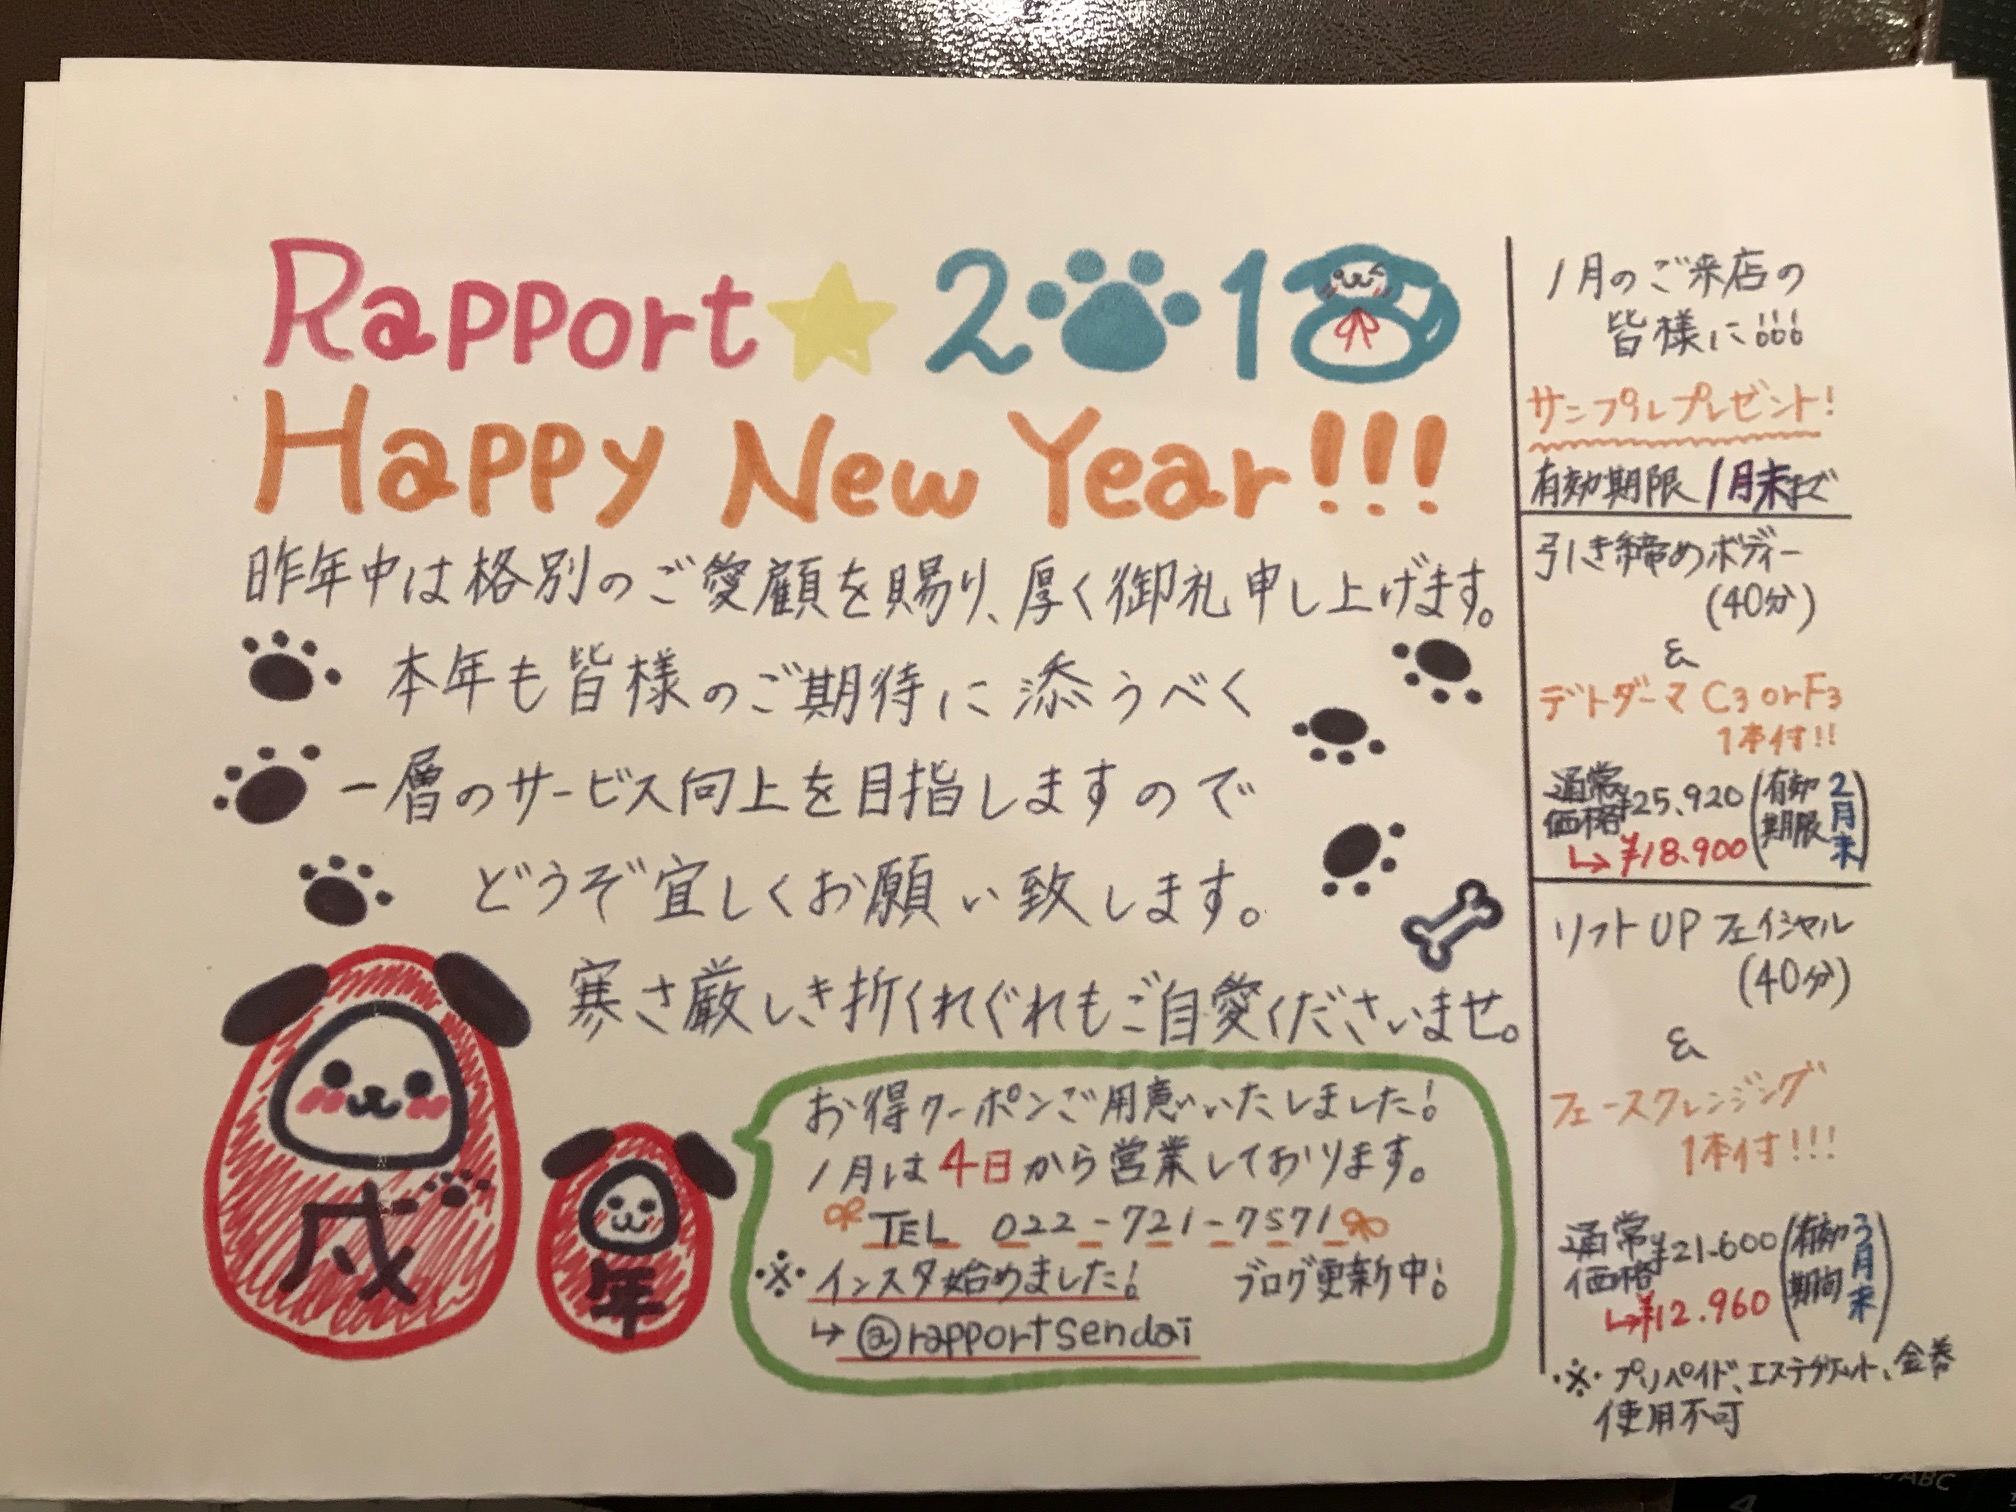 Rapport★2018
Happy New Year!!!
昨年中は格別のご愛顧を賜り、厚く御礼申し上げます。
本年も皆様のご期待に添うべく
一層のサービス向上を目指しますので
どうぞ宜しくお願い致します。
寒さ厳しき折くれぐれもご自愛くださいませ。
戌
年
お得クーポンご用意いたしました!
1月は4日から営業しております。
TEL 022-721-7571
※インスタ始めました! ブログ更新中!
↳@rapportsendai
1月のご来店の
皆様に!!!
サンプルプレゼント!
有効期限1月末まで
引き締めボディー
(40分)
&
デトダーマC3orF3
1本付!!
通常価格¥25,920(有効期限2月末)
↳¥18.900
リフトUPフェイシャル
(40分)
&
フェースクレンジング
1本付!!!
通常価格¥21.600(有効期間3月末)
↳¥12.960
※プリペイド、エステチケット、金券
使用不可
ABC
4